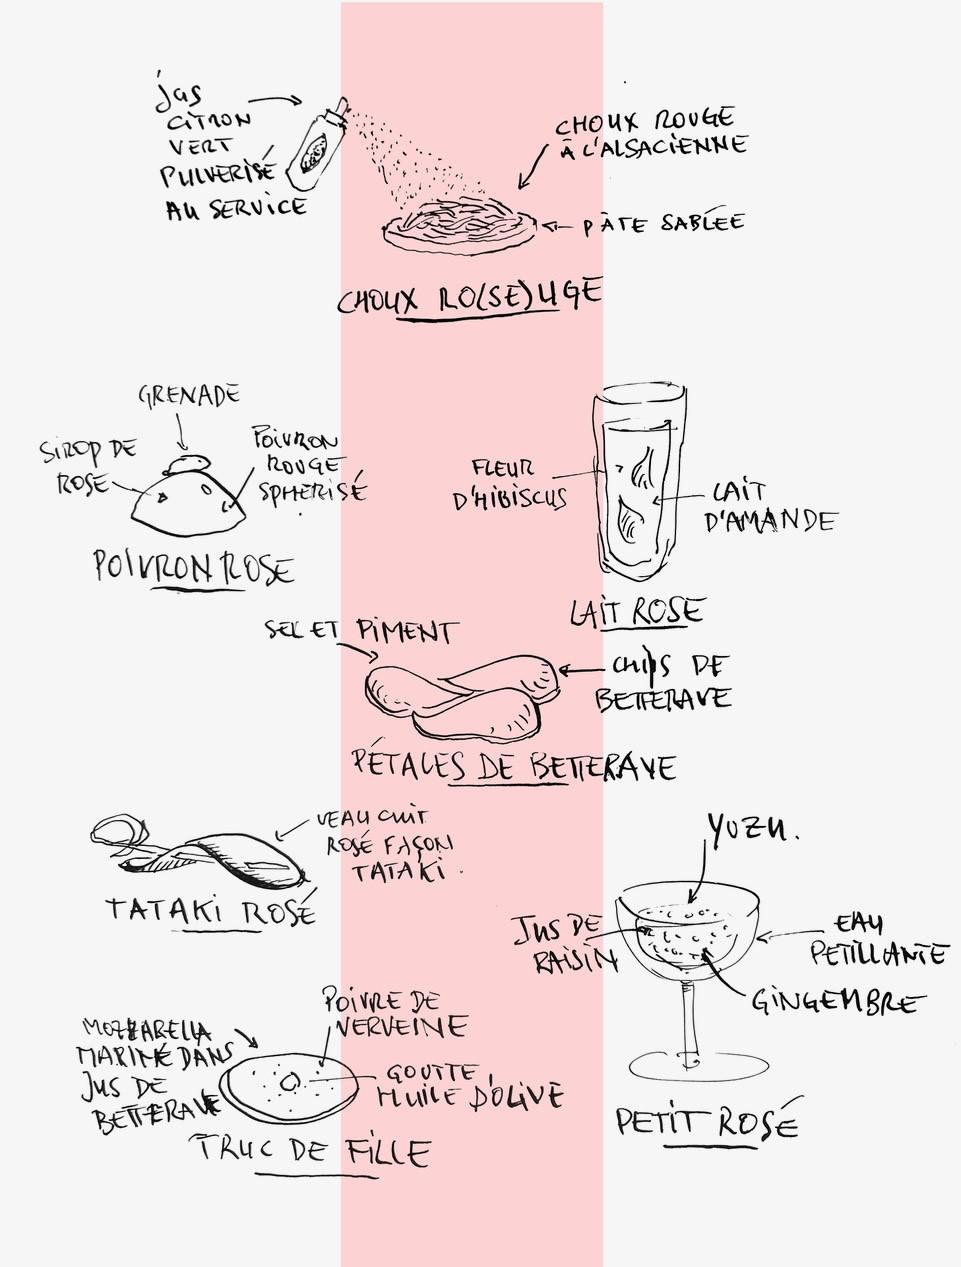 jus
CITRON
VERT
PULVERISÉ
AU SERVICE
CHOUX ROUGE
À L'ALSACIENNE
PÂTE SABLÉE
CHOUX RO(SE)UGE
GRENADE
SIROP DE
ROSE
POIVRON
ROUGE
SPHERISÉ
POIVRON ROSE
FLEUR
D'HIBISCUS
LAIT
D'AMANDE
LAIT ROSE
SEL ET PIMENT
CHIPS DE
BETTERAVE
PÉTALES DE BETTERAVE
VEAU CUIT
ROSÉ FAÇON
TATAKI
TATAKI ROSÉ
YUZU.
JUS DE
RAISIN
EAU
PETILLANTE
GINGEMBRE
PETIT ROSÉ
MOZZARELLA
MARINÉ DANS
JUS DE
BETTERAVE
POIVRE DE
VERVEINE
GOUTTE
HUILE D'OLIVE
TRUC DE FILLE